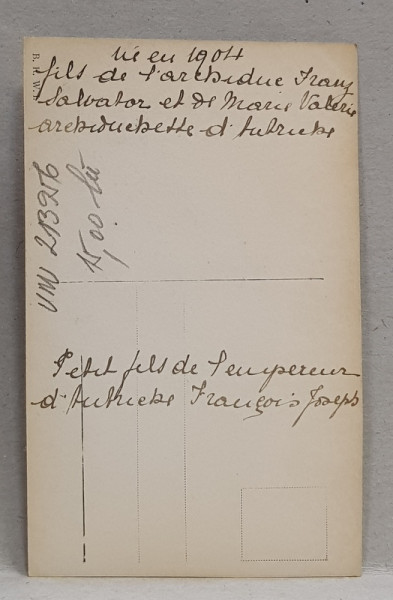 né en 1904
fils de l'archiduc Franz
Salvator et de Marie Valerie
archiduchesse d'Autriche
B. K. W. I.
VIW 213256
15,00
Petit fils de l'empereur
d'Autriche François Joseph